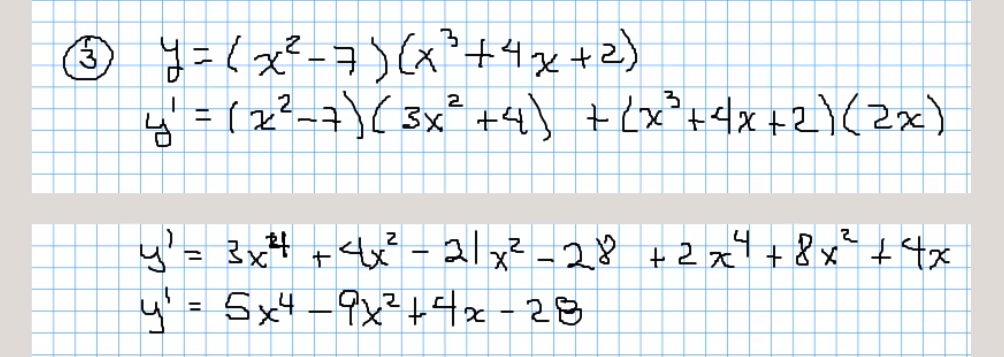 ③ y = (x² - 7)(x³ + 4x + 2)
y' = (x² - 7)(3x² + 4) + (x³ + 4x + 2)(2x)
y' = 3x⁴ + 4x² - 21x² - 28 + 2x⁴ + 8x² + 4x
y' = 5x⁴ - 9x² + 4x - 28